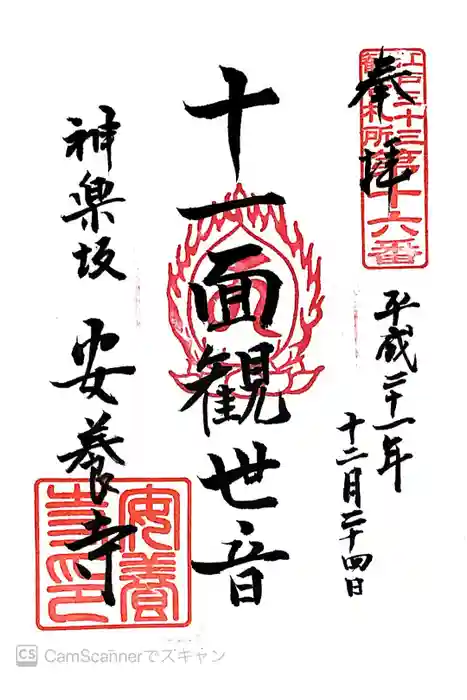 奉拝
江戸三十三
観音札所
第十六番
平成二十一年
十二月二十四日
十一面観世音
神楽坂
安養寺
安養
寺印
CS CamScannerでスキャン